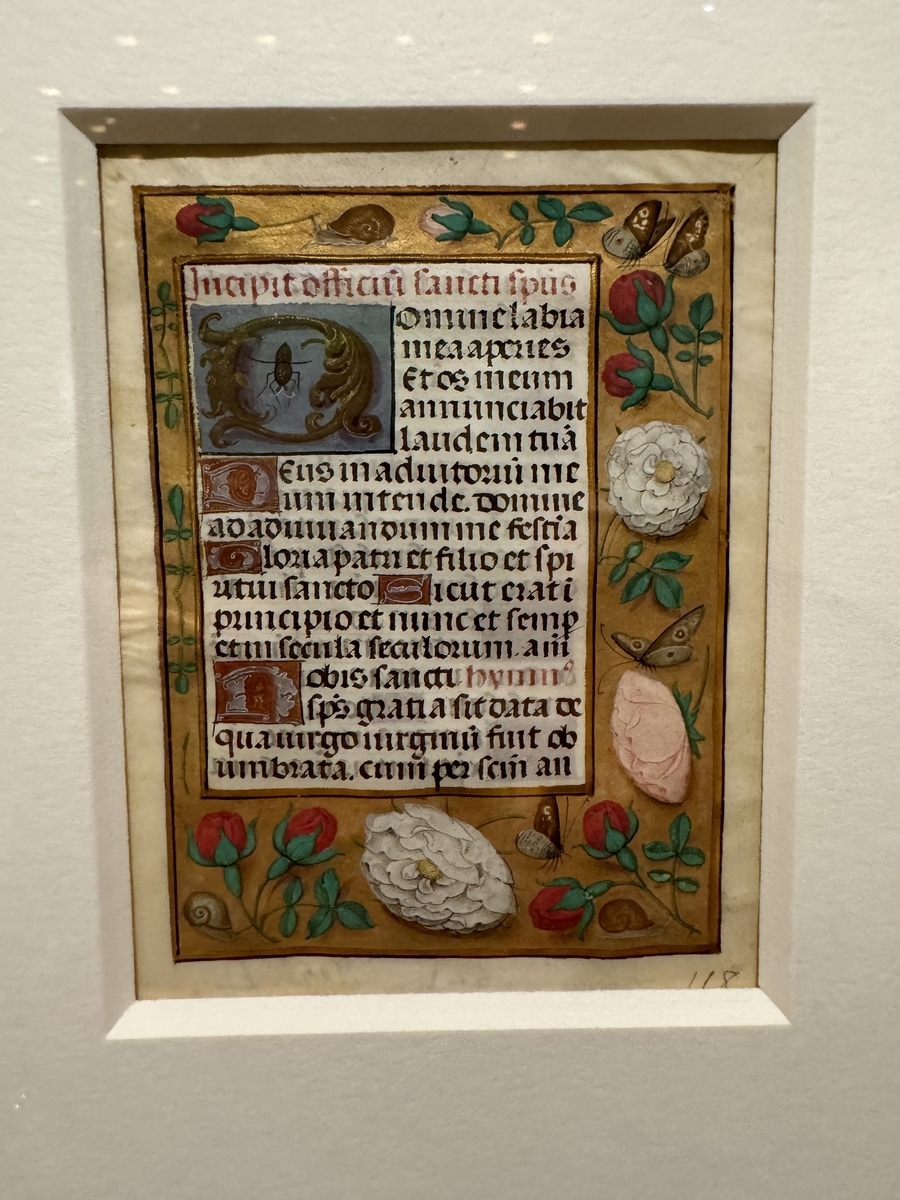 Incipit officiū sancti spūs
Domine labia
mea aperies
Et os meum
annunciabit
laudem tuā
Deus in adiutoriū me
um intende. domine
ad adiuuandum me festīa
Gloria patri et filio et spi
ritui sancto Sicut erat ī
principio et nunc et semp̄
et in secula seculorum. amē
Nobis sancti hymnꝰ
sp̄s gratia sit data de
qua uirgo uirginū fuit ob
umbrata. cum per scm̄ an
118